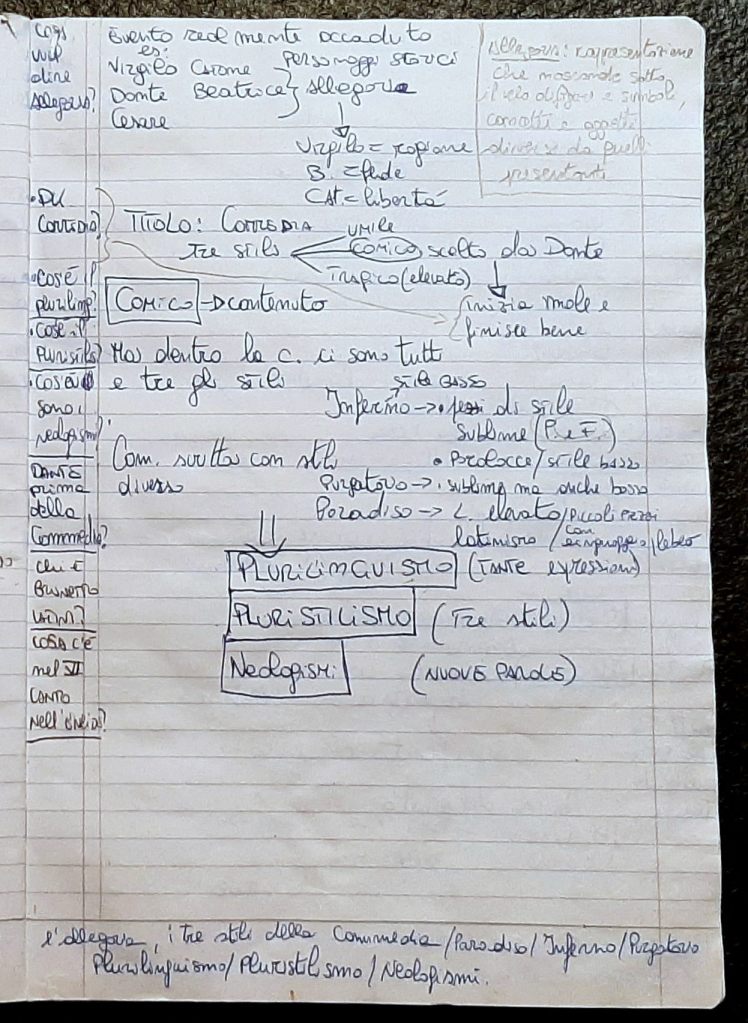 Cosa
vuol
dire
allegoria?
Evento realmente accaduto
es:
Virgilio Catone
Dante Beatrice
Cesare
personaggi storici
allegoria
Virgilio = ragione
B. = fede
CAT. = libertà
Allegoria: rappresentazione
che nasconde sotto
il velo di figure e simboli,
concetti e oggetti
diversi da quelli
presentati
TITOLO: COMMEDIA
Tre stili
UMILE
COMICO scelto da Dante
Tragico (elevato)
inizia male e
finisce bene
COMICO → contenuto
Ma dentro la c. ci sono tutti
e tre gli stili
stile basso
Inferno → pezzi di stile
sublime (P. e F.)
• Parolacce / stile basso
Purgatorio → sublime ma anche basso
Paradiso → L. elevato / piccoli pezzi
latinismo / con
Com. scritta con stili
diversi
PLURILINGUISMO (TANTE espressioni)
PLURISTILISMO (Tre stili)
Neologismi (NUOVE PAROLE)
COMMEDIA?
• COS'È il
pluriling?
• COS'È il
PLURISTILS?
• COS'È
sono i
neologismi?
DANTE
prima
della
Commedia?
chi è
BRUNETTO
LATINI?
COSA C'È
nel VI
CANTO
nell'ENEIDE?
l'allegoria, i tre stili della Commedia / Paradiso / Inferno / Purgatorio
Plurilinguismo / Pluristilismo / Neologismi.